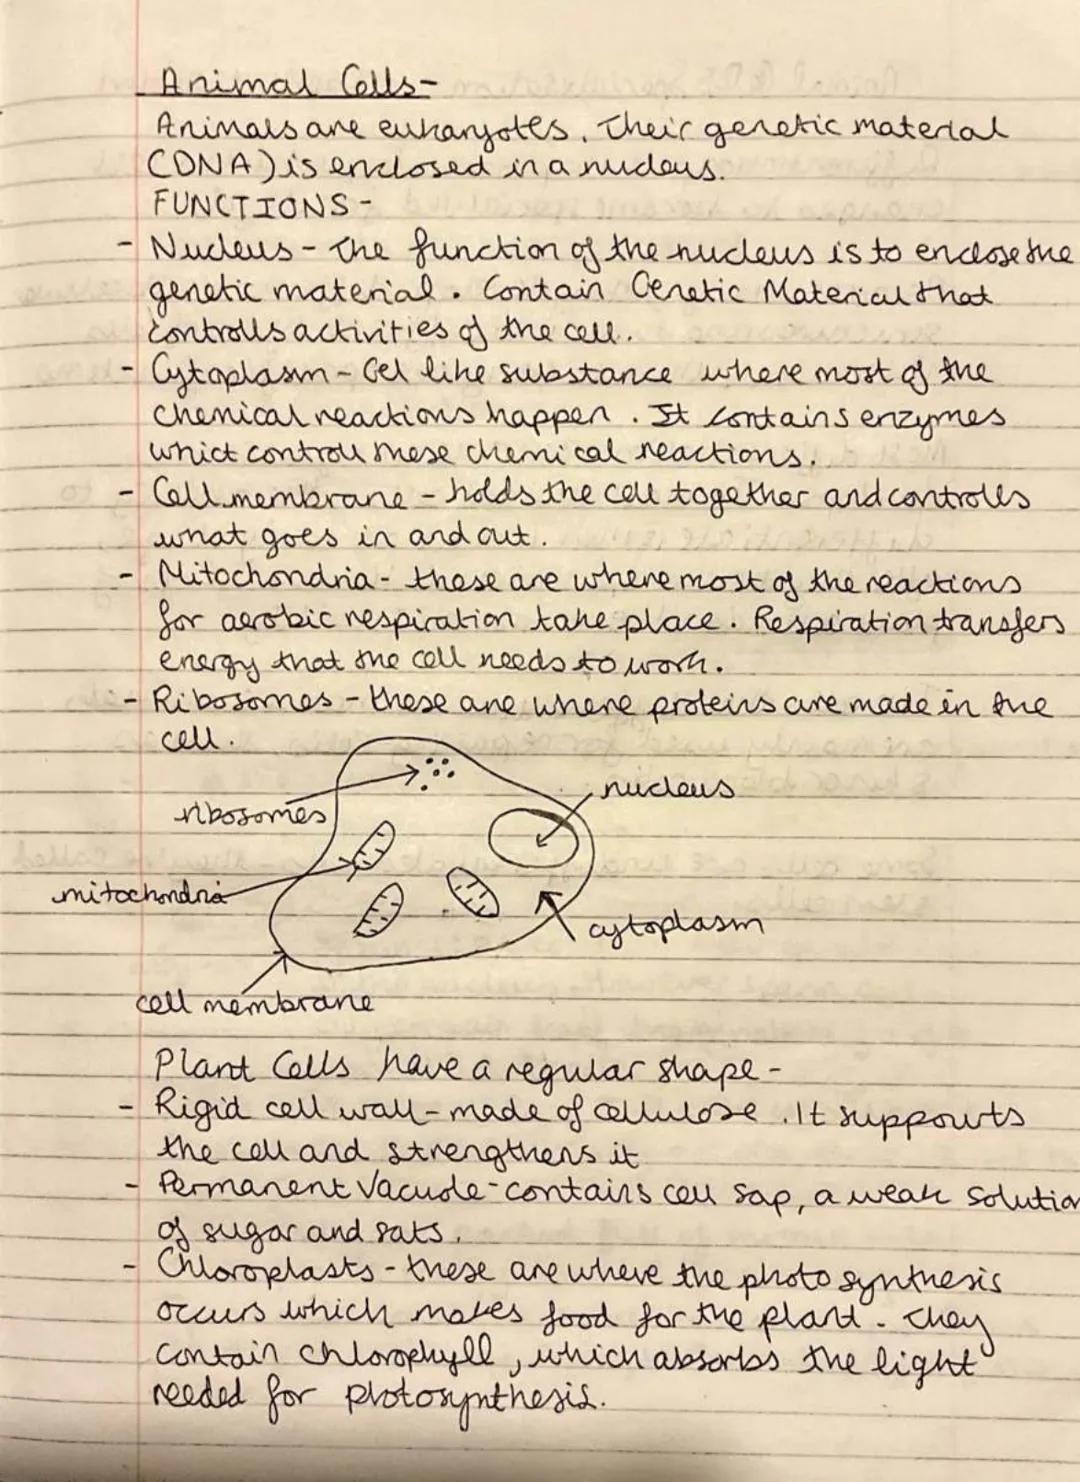 Animal Cells-
Animals are eukaryotes. Their genetic material
(DNA) is enclosed in a nucleus.
FUNCTIONS -
- Nucleus - The function of the nucleus is to enclose the
genetic material. Contain Genetic Material that
controlls activities of the cell.
- Cytoplasm - Gel like substance where most of the
chemical reactions happen. It contains enzymes
whict controll these chemical reactions.
- Cell membrane - holds the cell together and controlls
what goes in and out.
- Mitochondria - these are where most of the reactions
for aerobic respiration take place. Respiration transfers
energy that the cell needs to work.
- Ribosomes - these are where proteins are made in the
cell.
nucleus
ribosomes
mitochondria
cytoplasm
cell membrane
Plant Cells have a regular shape -
- Rigid cell wall - made of cellulose. It suppourts
the cell and strengthens it
- Permanent Vacuole - contains cell sap, a weak solution
of sugar and sats.
- Chloroplasts - these are where the photosynthesis
occurs which makes food for the plant. They
contain chlorophyll, which absorbs the light
needed for photosynthesis.